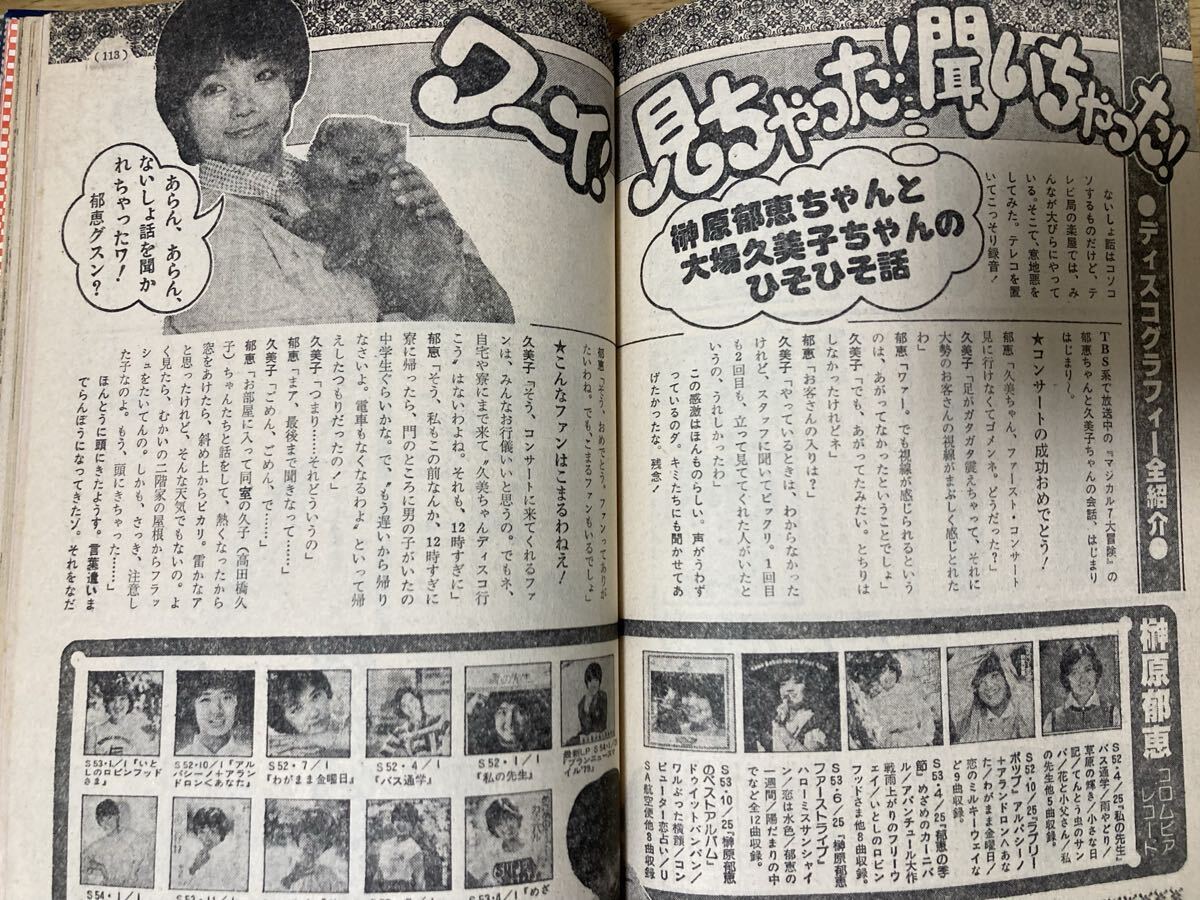 ●ディスコグラフィー全紹介●
ワ～イ!
見ちゃった!聞いちゃった!
榊原郁恵ちゃんと
大場久美子ちゃんの
ひそひそ話
ないしょ話はコソコ
ソするものだけど、テ
レビ局の楽屋では、み
んなが大びらにやって
いる。そこで、意地悪を
してみた。テレコを置
いてこっそり録音！
TBS系で放送中の『マジカル7大冒険』の
郁恵ちゃんと久美子ちゃんの会話、はじまり
はじまり～。
★コンサートの成功おめでとう！
郁恵「久美ちゃん、ファースト・コンサート
見に行けなくてゴメンネ。どうだった？」
久美子「足がガタガタ震えちゃって、それに
大勢のお客さんの視線がまぶしく感じとれた
わ」
郁恵「ワァー。でも視線が感じられるという
のは、あがってなかったということでしょ」
久美子「でも、あがってたみたい。とちりは
しなかったけれどネ」
郁恵「お客さんの入りは？」
久美子「やっているときは、わからなかった
けれど、スタッフに聞いてビックリ。1回目
も2回目も、立って見てくれた人がいたと
いうの、うれしかったわ」
この感激はほんものらしい。声がうわず
っているのダ。キミたちにも聞かせてあ
げたかったな。残念！
(113)
あらん、あらん、
ないしょ話を聞か
れちゃったワ！
郁恵グスン？
郁恵「そう、おめでとう。ファンってありが
たいわね。でも、こまるファンもいるでしょ」
★こんなファンはこまるわねえ！
久美子「そう、コンサートに来てくれるファ
ンは、みんなお行儀いいと思うの。でもネ、
自宅や寮にまで来て〝久美ちゃんディスコ行
こう〟はないわよね。それも、12時すぎに」
郁恵「そう、私もこの前なんか、12時すぎに
寮に帰ったら、門のところに男の子がいたの
中学生ぐらいかな。で、〝もう遅いから帰り
なさいよ。電車もなくなるわよ〟といって帰
えしたつもりだったの！」
久美子「つまり……それどういうの」
郁恵「まア、最後まで聞きなって……」
久美子「ごめん、ごめん、で……」
郁恵「お部屋に入って同室の久子（高田橋久
子）ちゃんたちと話をして、熱くなったから
窓をあけたら、斜め上からピカリ。雷かなア
と思ったけれど、そんな天気でもないの。よ
く見たら、むかいの二階家の屋根からフラッ
シュをたいてんの。しかも、さっき、注意し
た子なのよ。もう、頭にきちゃった……」
ほんとうに頭にきたようす。言葉遣いま
でらんぼうになってきたゾ。それをなだ
榊原郁恵
コロムビア
レコード
S52・4/25『私の先生』
バス通学/雨やどり/
草原の輝き/小さな日
記/てんとう虫のサン
バ/花と小父さん/私
の先生他5曲収録。
S52・10/25『ラブリー
ポップ』アルパシーノ
+アランドロン<あな
た/わがまま金曜日/
恋のミルキーウェイな
ど9曲収録。
S53・4/25『郁恵の季
節』めざめのカーニバ
ル/アバンチュール大作
戦/雨上がりのフリーウ
ェイ/いとしのロビン
フッドさま他8曲収録。
S53・6/25『榊原郁恵
ファーストライブ』
ハーミスサンシャイ
ン/恋は水色/郁恵の
一週間/陽だまりの中
でなど全12曲収録。
S53・10/25『榊原郁恵
のベストアルバム』
ドゥイットバンバン/
ワルぶった横顔/コン
ピューター恋占い/U
SA航空便他8曲収録
最新LP S54・1/25
『ブランニュースマ
イル'79』
S52・1/1
『私の先生』
S52・4/1
『バス通学』
S52・7/1
『わがまま金曜日』
S52・10/1『アル
パシーノ+アラン
ドロン<あなた』
S53・1/1『いと
しのロビンフッド
さま』
S53・4/1『めざ
S54・1/1